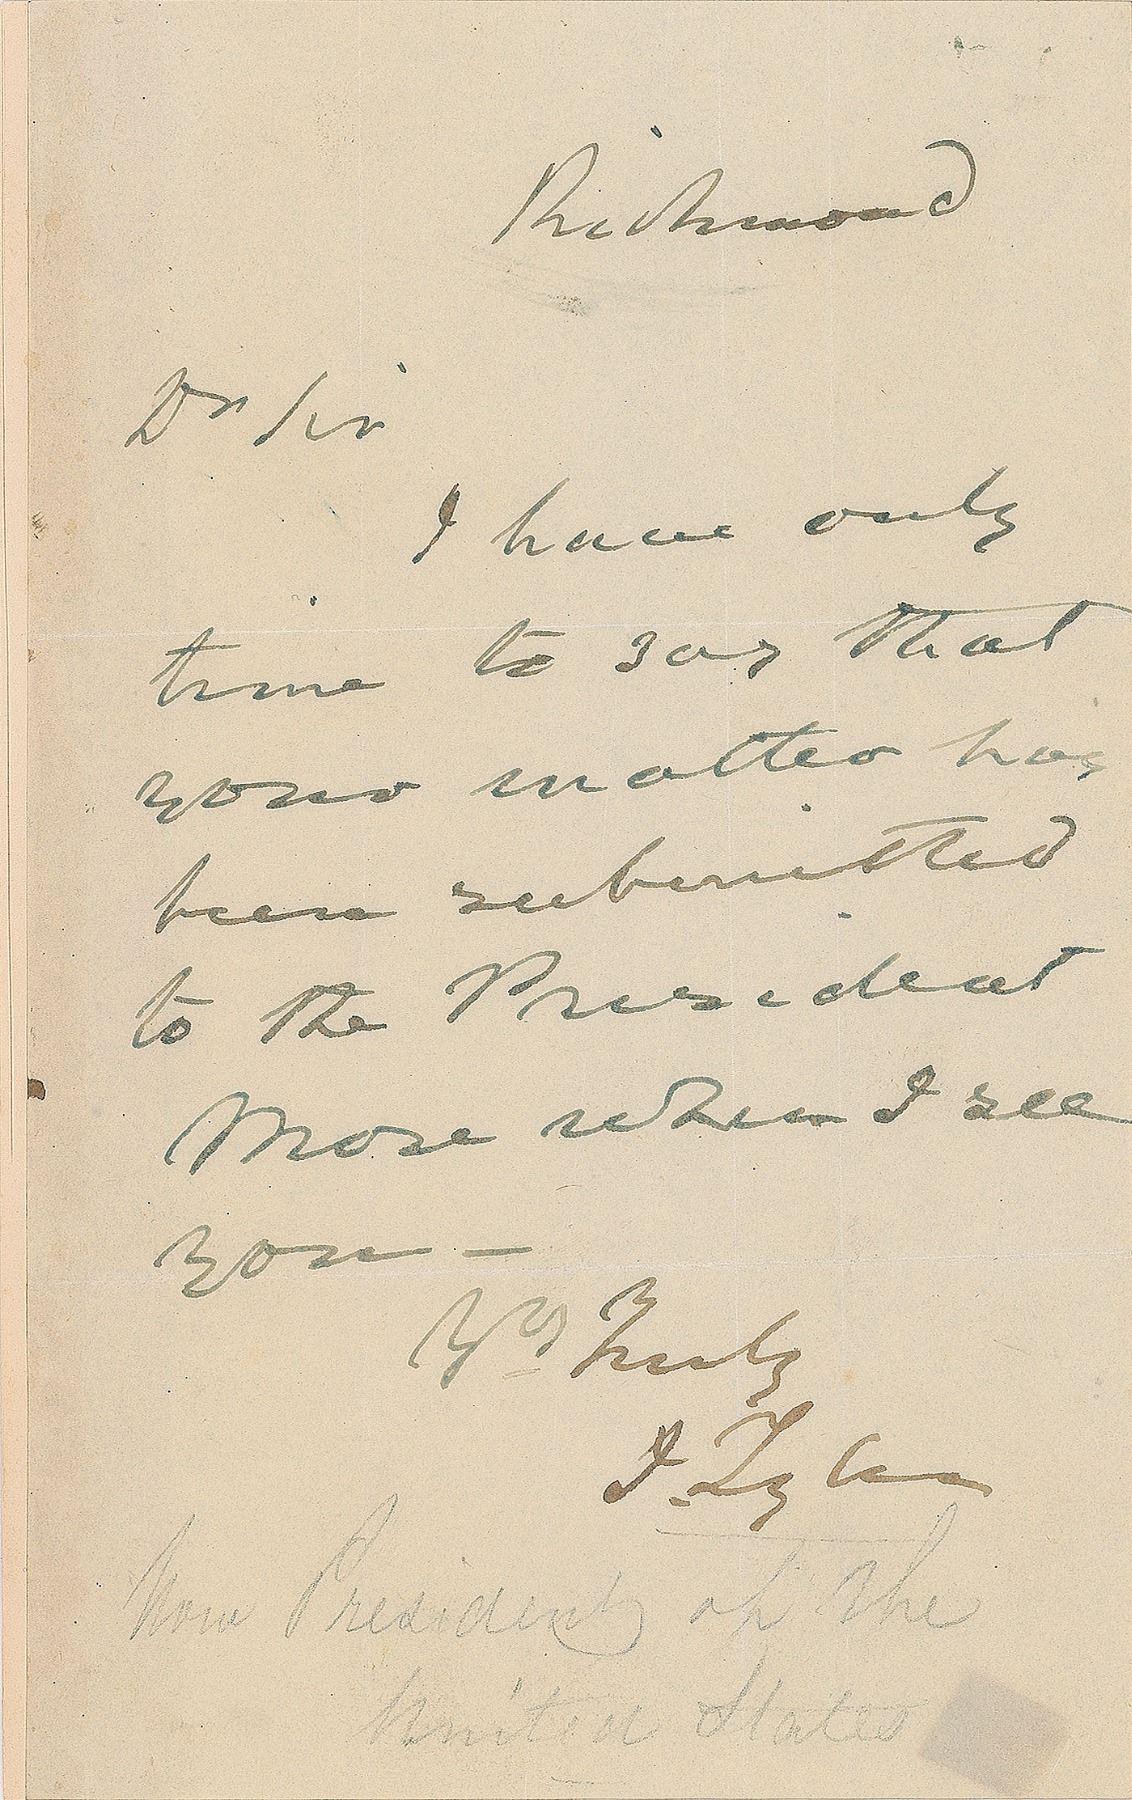 Richmond
Dr Sir
I have only
time to say that
your matter has
been submitted
to the President
More when I see
you —
Yrs Truly
J. Tyler
Now President of the
United States